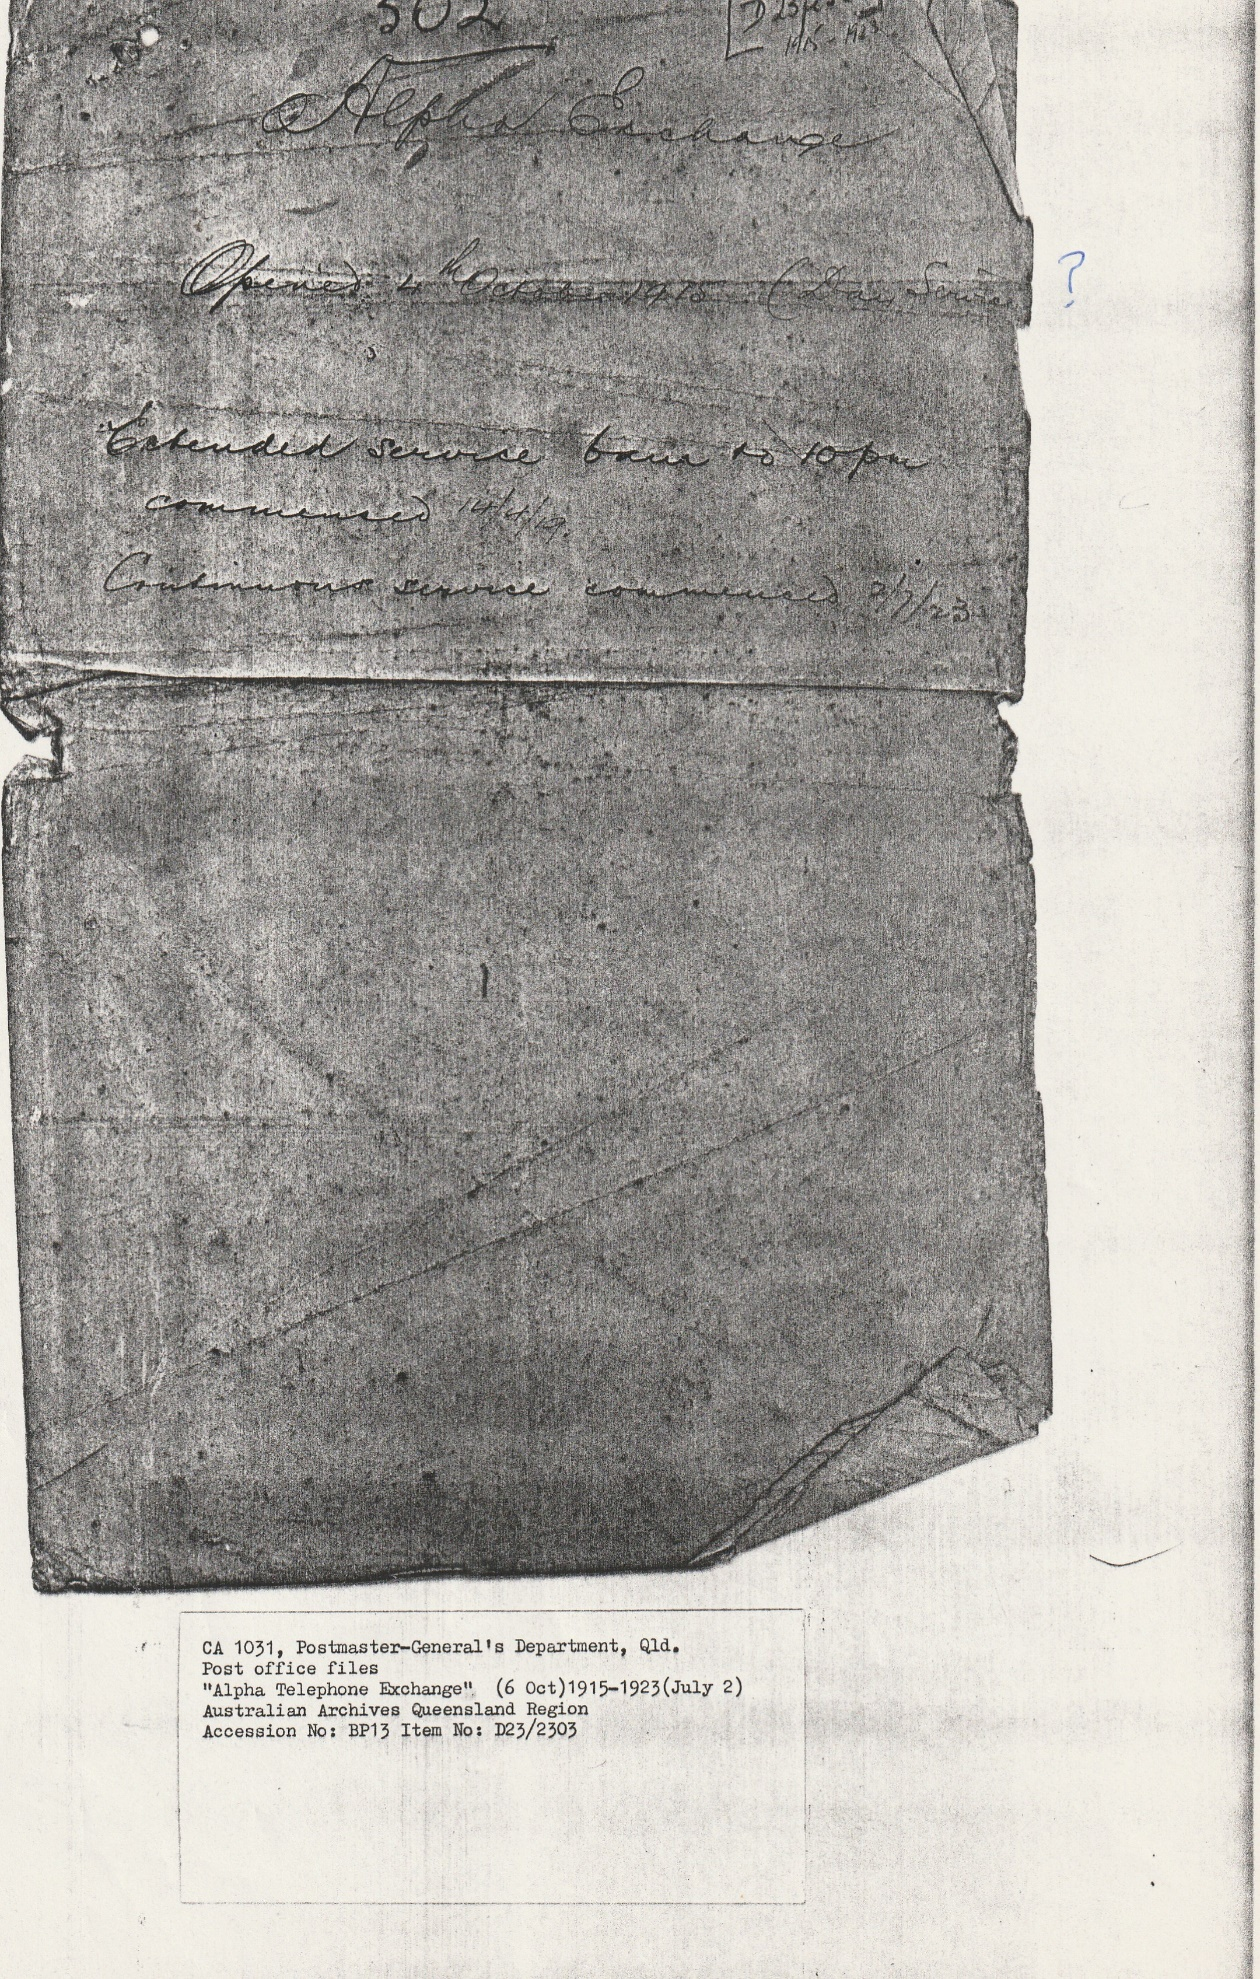 502
1915-1923
Alpha Exchange
Opened 4th October 1915 (Day Service
?
Extended service 6am to 10pm
commenced 14/4/19.
Continuous service commenced 2/7/23
CA 1031, Postmaster-General's Department, Qld.
Post office files
"Alpha Telephone Exchange" (6 Oct)1915-1923(July 2)
Australian Archives Queensland Region
Accession No: BP13 Item No: D23/2303